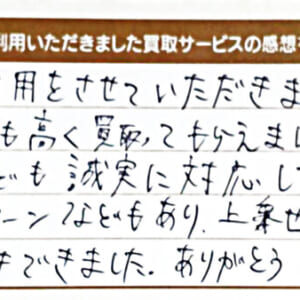 利用いただきました買取サービスの感想
用をさせていただきま
も高く買取ってもらえまし
ども誠実に対応し
ーンなどもあり、上乗せ
できました。ありがとう